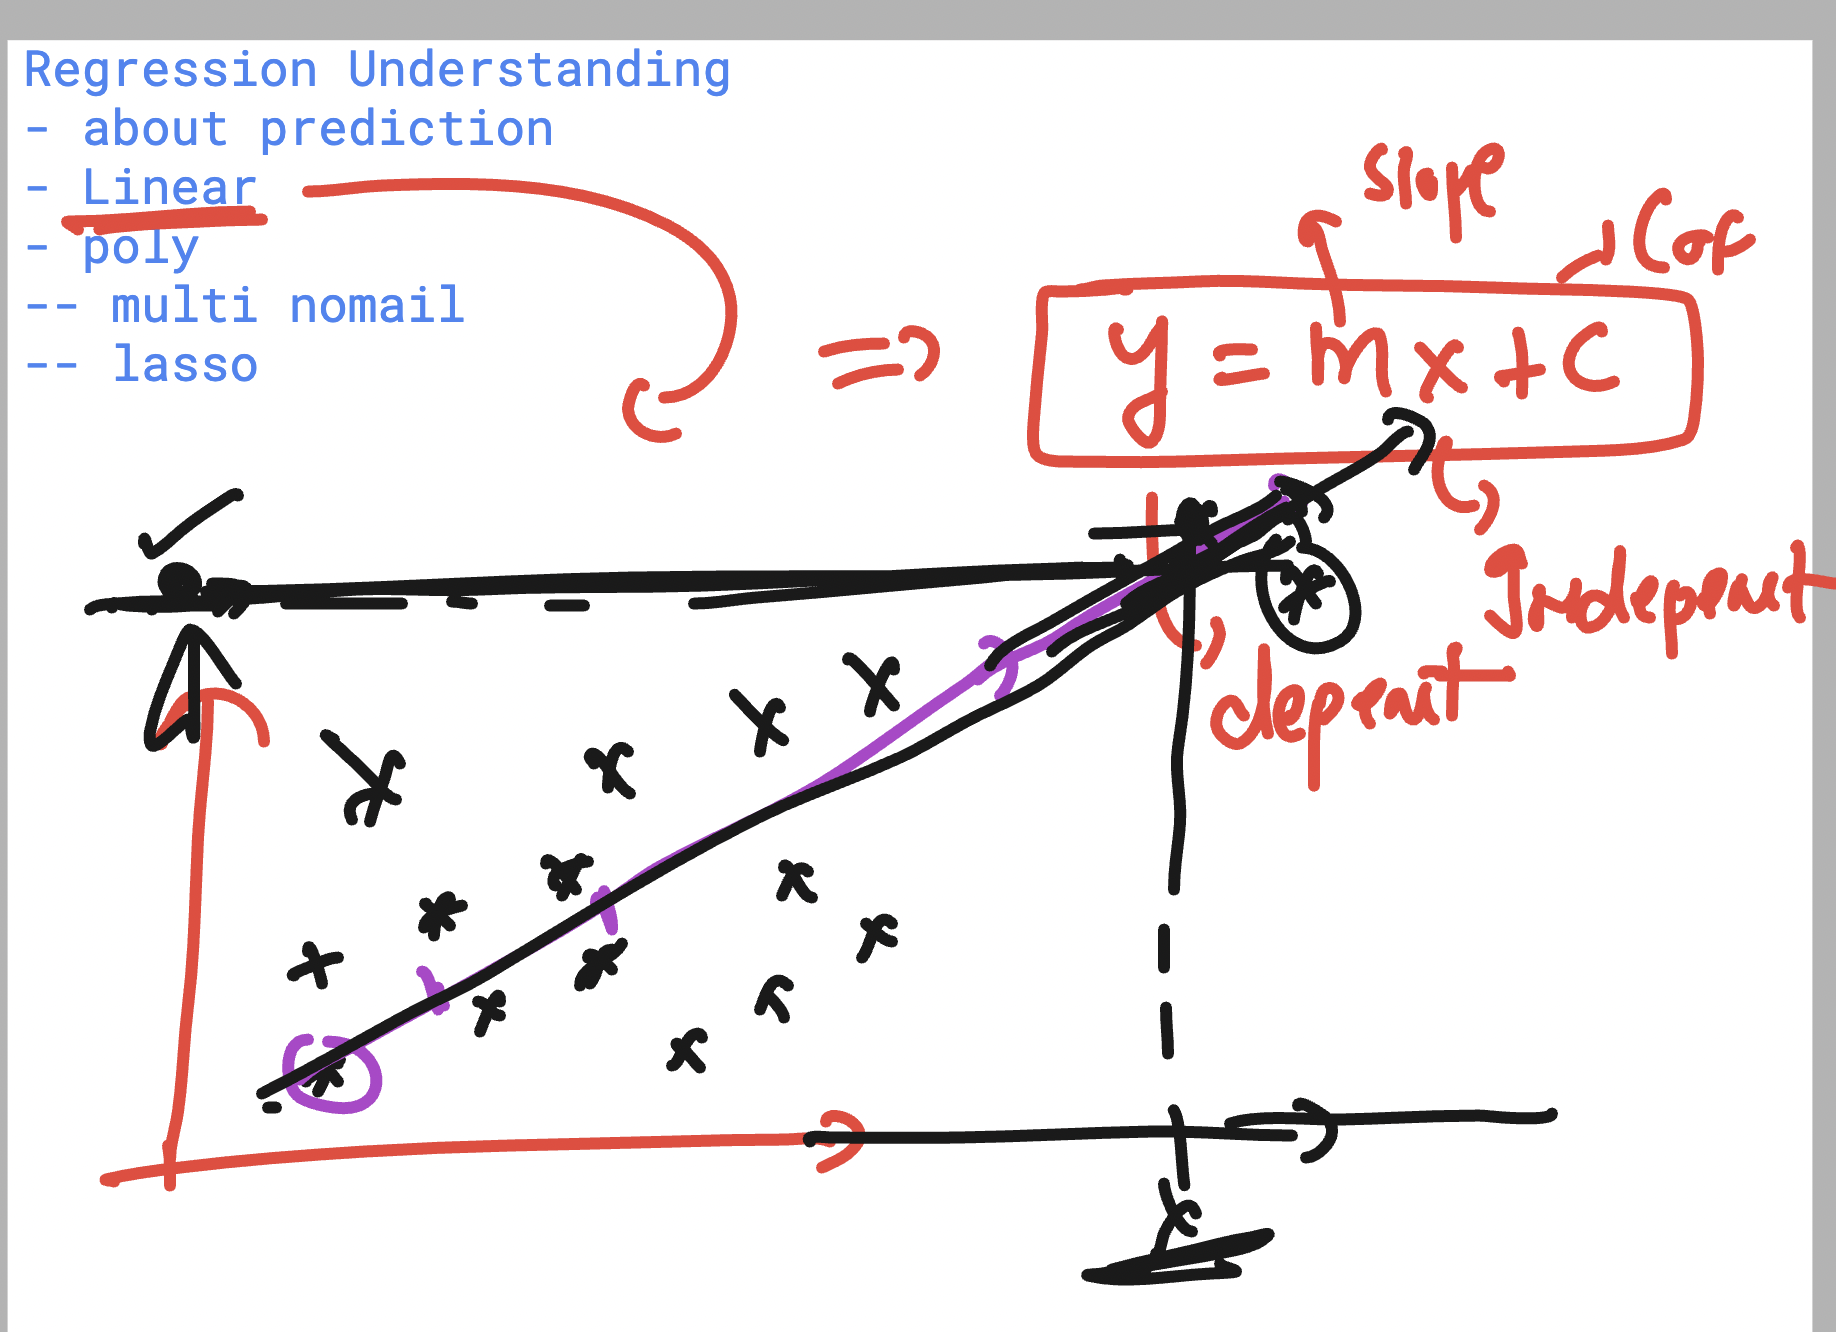 Regression Understanding
- about prediction
- Linear
- poly
-- multi nomail
-- lasso
slope
Cof
=> y = mx + c
Indepent
depent
x